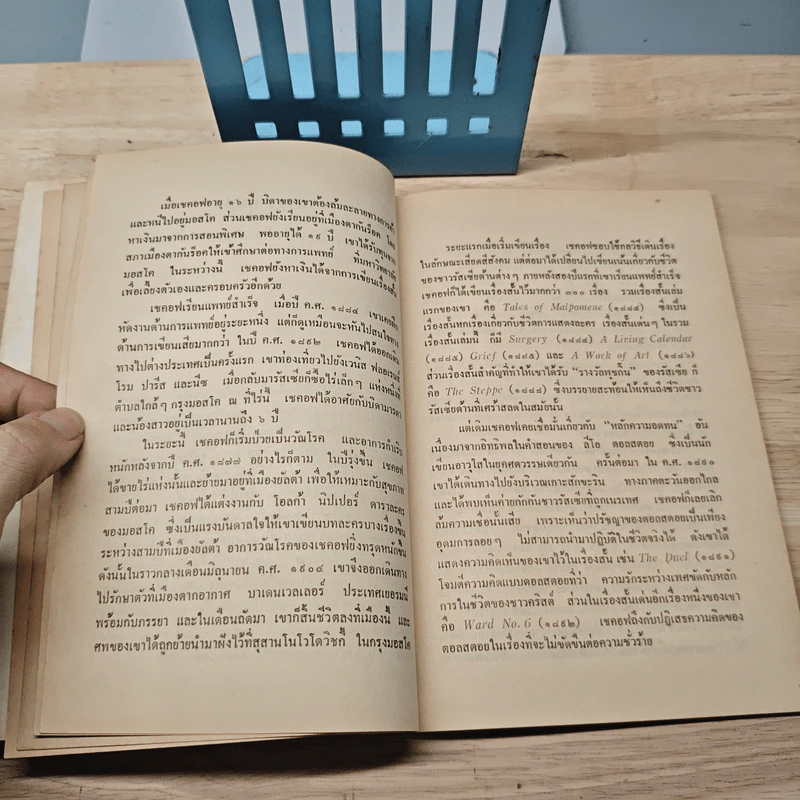 เมื่อเชคอฟอายุ ๑๖ ปี บิดาของเขาต้องล้มละลายทางการค้า
และหนีไปอยู่มอสโค ส่วนเชคอฟยังเรียนอยู่ที่เมืองตากันร็อค โดย
หาเงินมาจากการสอนพิเศษ พออายุได้ ๑๙ ปี เขาได้รับทุนจาก
สภาเมืองตากันร็อคให้เข้าศึกษาต่อทางการแพทย์ ที่มหาวิทยาลัย
มอสโค ในระหว่างนี้ เชคอฟยังหาเงินได้จากการเขียนเรื่องสั้น
เพื่อเลี้ยงตัวเองและครอบครัวอีกด้วย
เชคอฟเรียนแพทย์สำเร็จ เมื่อปี ค.ศ. ๑๘๘๔ เขาเคยฝึก
หัดงานด้านการแพทย์อยู่ระยะหนึ่ง แต่ก็ดูเหมือนจะหันไปสนใจทาง
ด้านการเขียนเสียมากกว่า ในปี ค.ศ. ๑๘๙๒ เชคอฟได้ออกเดิน
ทางไปต่างประเทศเป็นครั้งแรก เขาท่องเที่ยวไปยังเวนิส ฟลอเรนซ์
โรม ปารีส และนีซ เมื่อกลับมารัสเซียก็ซื้อไร่เล็กๆ แห่งหนึ่งที่
ตำบลใกล้ๆ กรุงมอสโค ณ ที่ไร่นี้ เชคอฟได้อาศัยกับบิดามารดา
และน้องสาวอยู่เป็นเวลานานถึง ๖ ปี
ในระยะนี้ เชคอฟก็เริ่มป่วยเป็นวัณโรค และอาการกำเริบ
หนักหลังจากปี ค.ศ. ๑๘๗๗ อย่างไรก็ตาม ในปีรุ่งขึ้น เชคอฟ
ได้ขายไร่แห่งนั้นและย้ายมาอยู่ที่เมืองยัลต้า เพื่อให้เหมาะกับสุขภาพ
สามปีต่อมา เชคอฟได้แต่งงานกับ โอลก้า นิปเปอร์ ดาราละคร
ของมอสโค ซึ่งเป็นแรงบันดาลใจให้เขาเขียนบทละครบางเรื่องขึ้น
ระหว่างสามปีที่เมืองยัลต้า อาการวัณโรคของเชคอฟยิ่งทรุดหนักขึ้น
ดังนั้นในราวกลางเดือนมิถุนายน ค.ศ. ๑๙๐๔ เขาจึงออกเดินทาง
ไปรักษาตัวที่เมืองตากอากาศ บาเดนเวลเลอร์ ประเทศเยอรมนี
พร้อมกับภรรยา และในเดือนถัดมา เขาก็สิ้นชีวิตลงที่เมืองนี้ และ
ศพของเขาได้ถูกย้ายนำมาฝังไว้ที่สุสานโนโวโดวิชกี้ ในกรุงมอสโค
ระยะแรกเมื่อเริ่มเขียนเรื่อง เชคอฟชอบใช้กลวิธีเดินเรื่อง
ในลักษณะเสียดสีสังคม แต่ต่อมาได้เปลี่ยนไปเขียนเน้นเกี่ยวกับชีวิต
ของชาวรัสเซียด้านต่างๆ ภายหลังสองปีแรกที่เขาเรียนแพทย์สำเร็จ
เชคอฟก็ได้เขียนเรื่องสั้นไว้มากกว่า ๓๐๐ เรื่อง รวมเรื่องสั้นเล่ม
แรกของเขา คือ Tales of Malpomene (๑๘๘๔) ซึ่งเป็น
เรื่องสั้นหกเรื่องเกี่ยวกับชีวิตการแสดงละคร เรื่องสั้นเด่นๆ ในรวม
เรื่องสั้นเล่มนี้ ก็มี Surgery (๑๘๘๔) A Living Calendar
(๑๘๘๕) Grief (๑๘๘๕) และ A Work of Art (๑๘๘๖)
ส่วนเรื่องสั้นสำคัญที่ทำให้เขาได้รับ “รางวัลพุชกิน” ของรัสเซีย ก็
คือ The Steppe (๑๘๘๘) ซึ่งบรรยายสะท้อนให้เห็นถึงชีวิตชาว
รัสเซียด้านที่เศร้าสลดในสมัยนั้น
แต่เดิมเชคอฟเคยเชื่อมั่นเกี่ยวกับ “หลักความอดทน” อัน
เนื่องมาจากอิทธิพลในคำสอนของ ลีโอ ตอลสตอย ซึ่งเป็นนัก
เขียนอาวุโสในยุคศตวรรษเดียวกัน ครั้นต่อมา ใน ค.ศ. ๑๘๙๐
เขาได้เดินทางไปยังบริเวณเกาะสักขะริน ทางภาคตะวันออกไกล
และได้พบเห็นค่ายกักกันชาวรัสเซียที่ถูกเนรเทศ เชคอฟก็เลยเลิก
ล้มความเชื่อนั้นเสีย เพราะเห็นว่าปรัชญาของตอลสตอยเป็นเพียง
อุดมการลอยๆ ไม่สามารถนำมาปฏิบัติในชีวิตจริงได้ ดังเขาได้
แสดงความคิดเห็นของเขาไว้ในเรื่องสั้น เช่น The Duel (๑๘๙๑)
โจมตีความคิดแบบตอลสตอยที่ว่า ความรักระหว่างเพศขัดกับหลัก
การในชีวิตของชาวคริสต์ ส่วนในเรื่องสั้นเด่นอีกเรื่องหนึ่งของเขา
คือ Ward No. 6 (๑๘๙๒) เชคอฟถึงกับปฏิเสธความคิดของ
ตอลสตอยในเรื่องที่จะไม่ขัดขืนต่อความชั่วร้าย